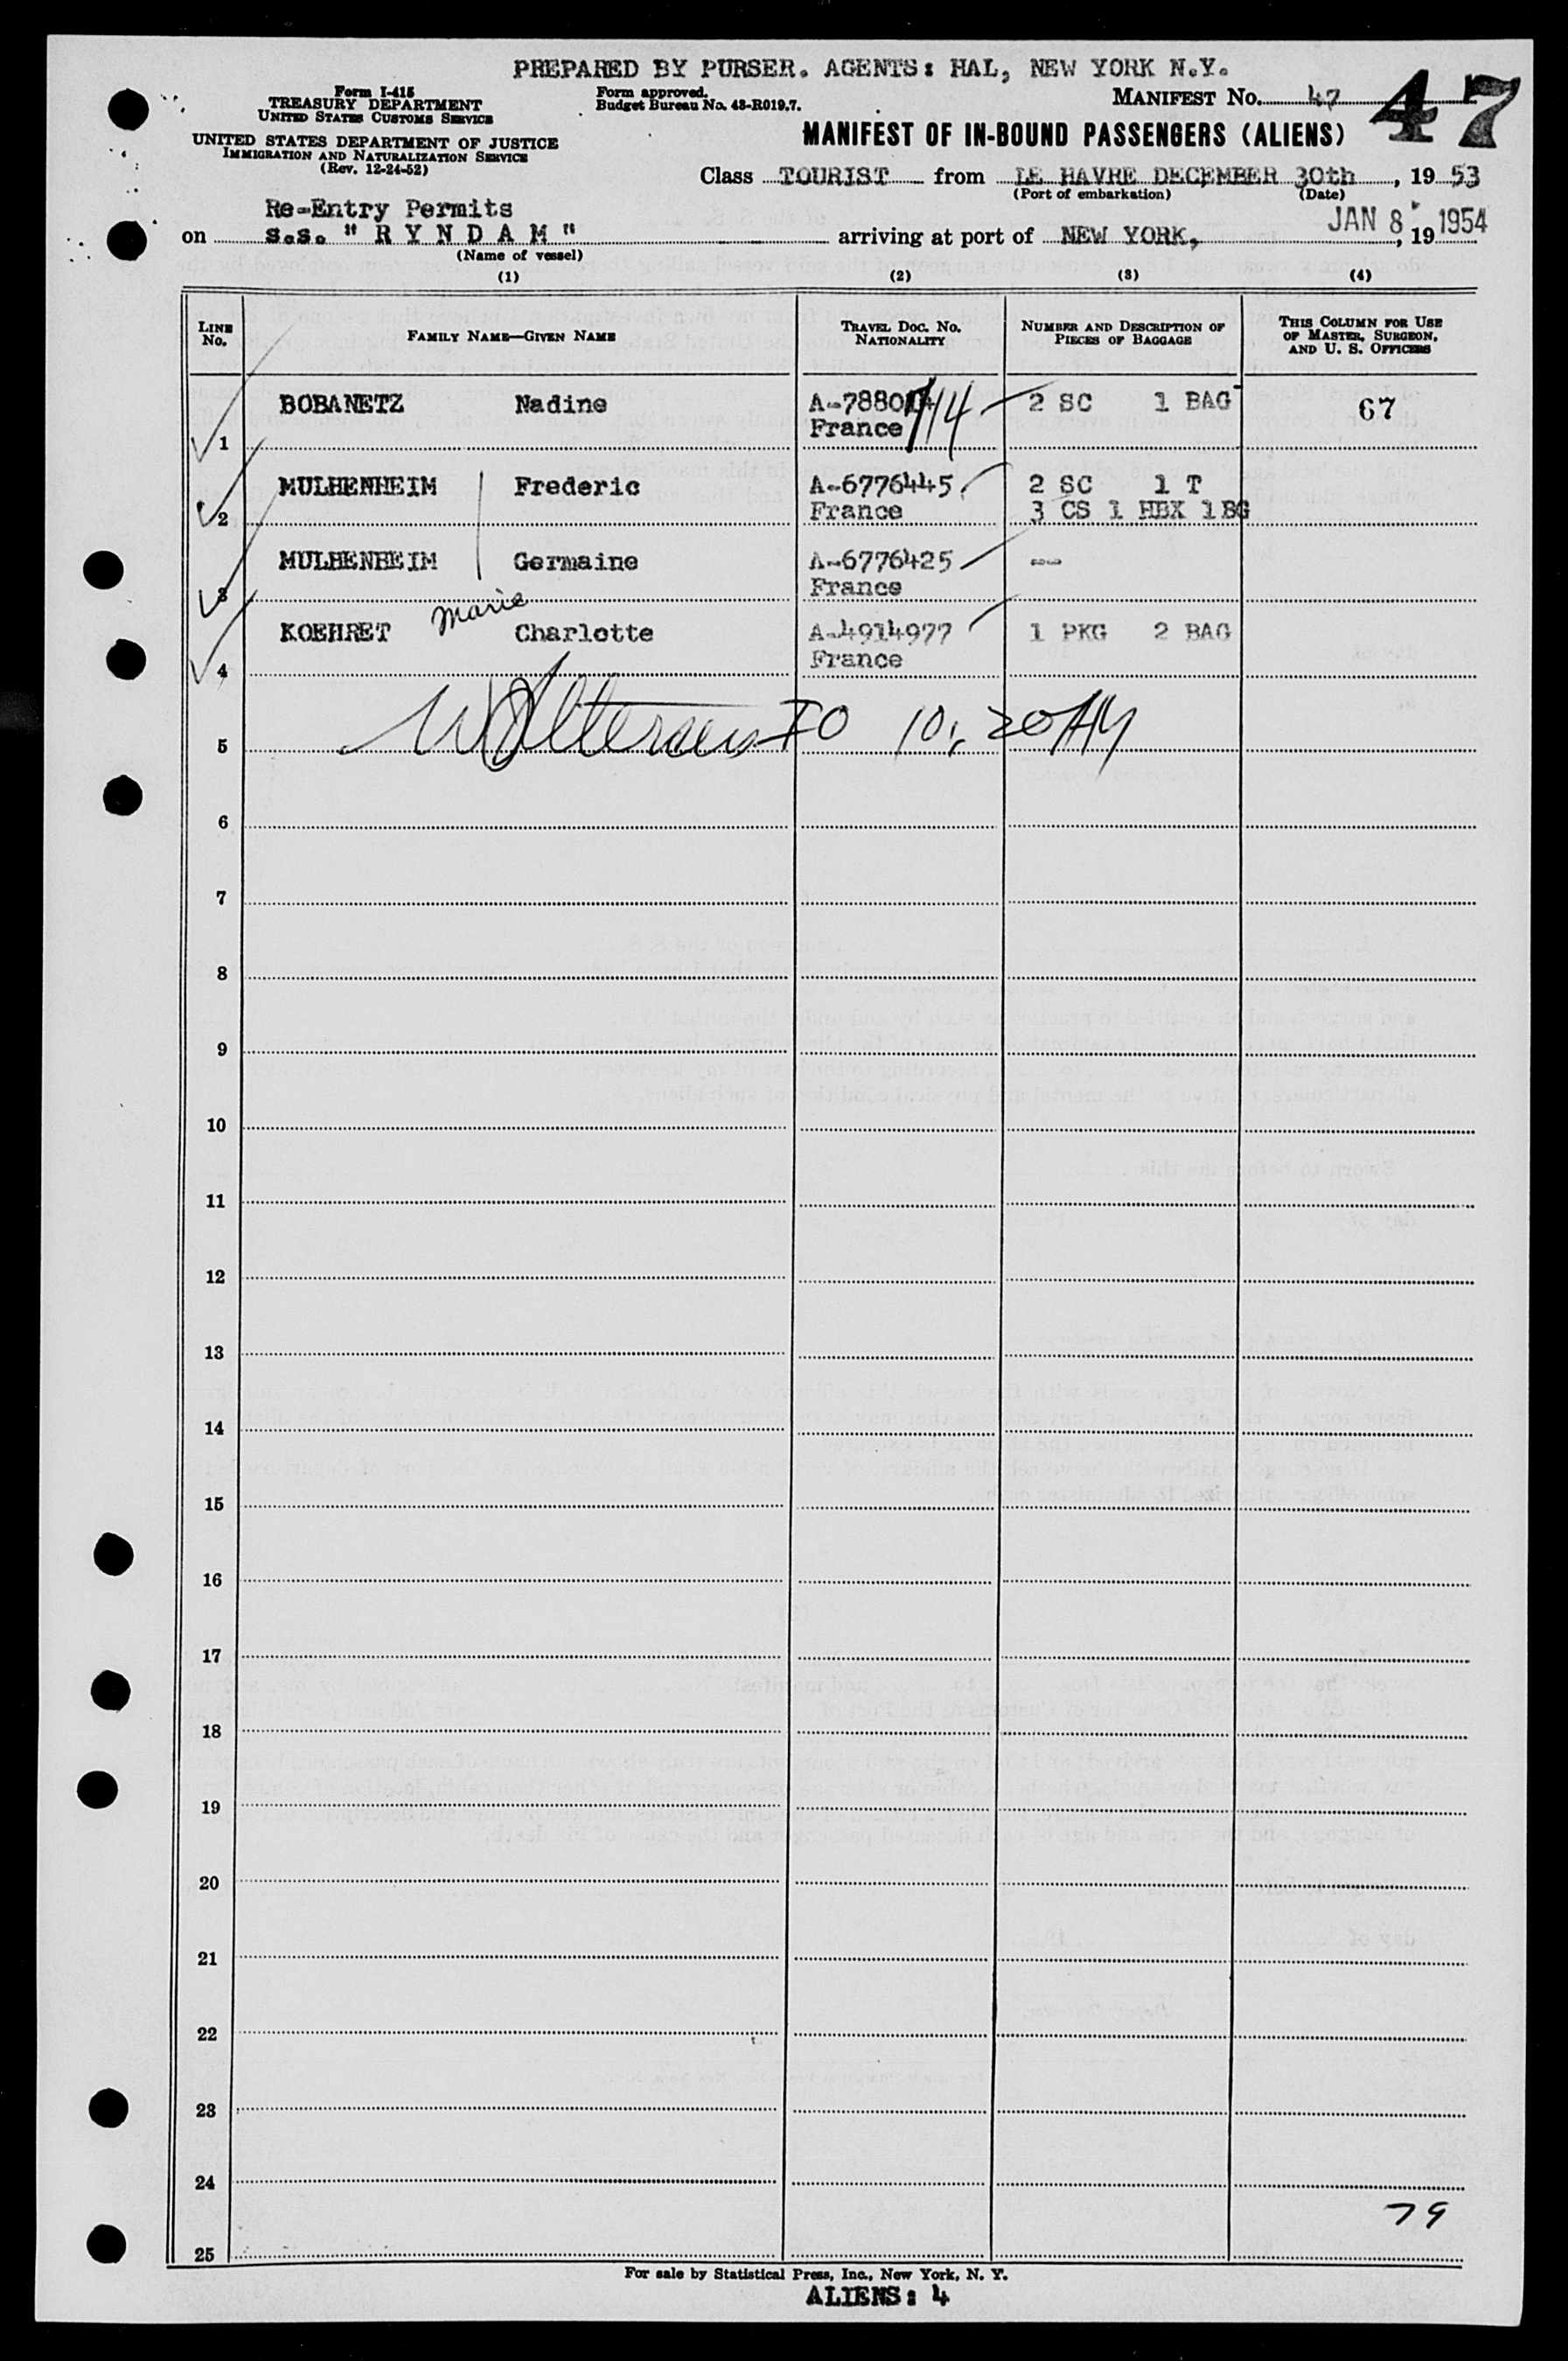 PREPARED BY PURSER. AGENTS: HAL, NEW YORK N.Y.
Form I-415
TREASURY DEPARTMENT
UNITED STATES CUSTOMS SERVICE
UNITED STATES DEPARTMENT OF JUSTICE
IMMIGRATION AND NATURALIZATION SERVICE
(Rev. 12-24-52)
Form approved.
Budget Bureau No. 43-R019.7.
MANIFEST No. 47
47
MANIFEST OF IN-BOUND PASSENGERS (ALIENS)
Class TOURIST from LE HAVRE DECEMBER 30th, 19 53
(Port of embarkation) (Date)
Re-Entry Permits
on s.s. " R Y N D A M " arriving at port of NEW YORK, JAN 8, 19 1954
(Name of vessel)
(1) (2) (3) (4)
LINE No. FAMILY NAME—GIVEN NAME TRAVEL DOC. NO. NATIONALITY NUMBER AND DESCRIPTION OF PIECES OF BAGGAGE THIS COLUMN FOR USE OF MASTER, SURGEON, AND U. S. OFFICERS
BOBANETZ Nadine 2 SC 1 BAG 67
1 France
MULHENHEIM Frederic A-6776445 2 SC 1 T
2 France 3 CS 1 HBX 1BG
MULHENHEIM Germaine A-6776425 --
3 France
KOEHRET Marie Charlotte A-4914977 1 PKG 2 BAG
4 France
5 IO 10:20 AM
6
7
8
9
10
11
12
13
14
15
16
17
18
19
20
21
22
23
24
79
25
For sale by Statistical Press, Inc., New York, N. Y.
ALIENS: 4